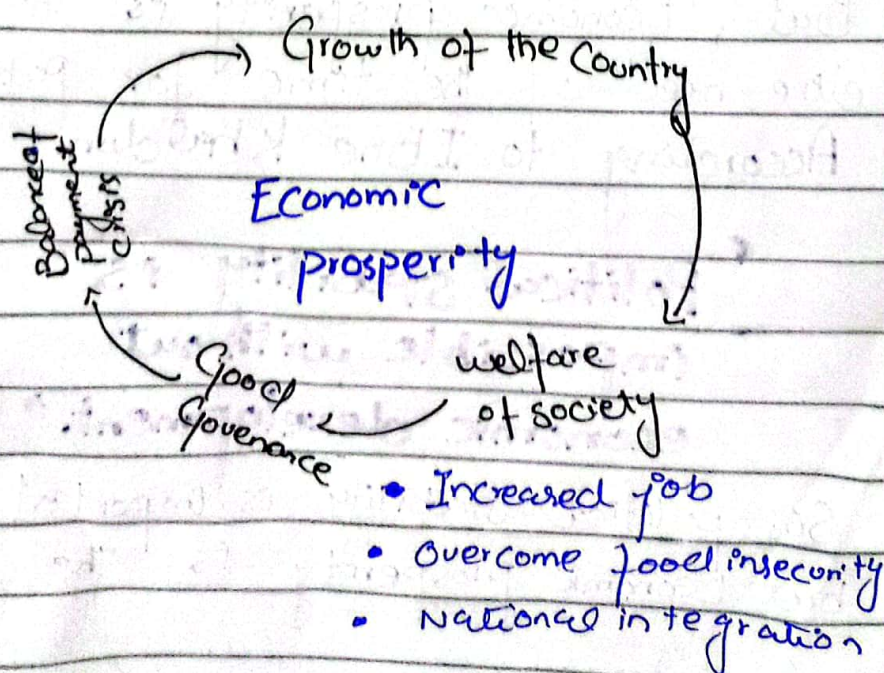 Growth of the Country
Balance of
payment
crisis
Economic
prosperity
welfare
of society
Good
Govenance
• Increased job
• Overcome food insecurity
• National integration